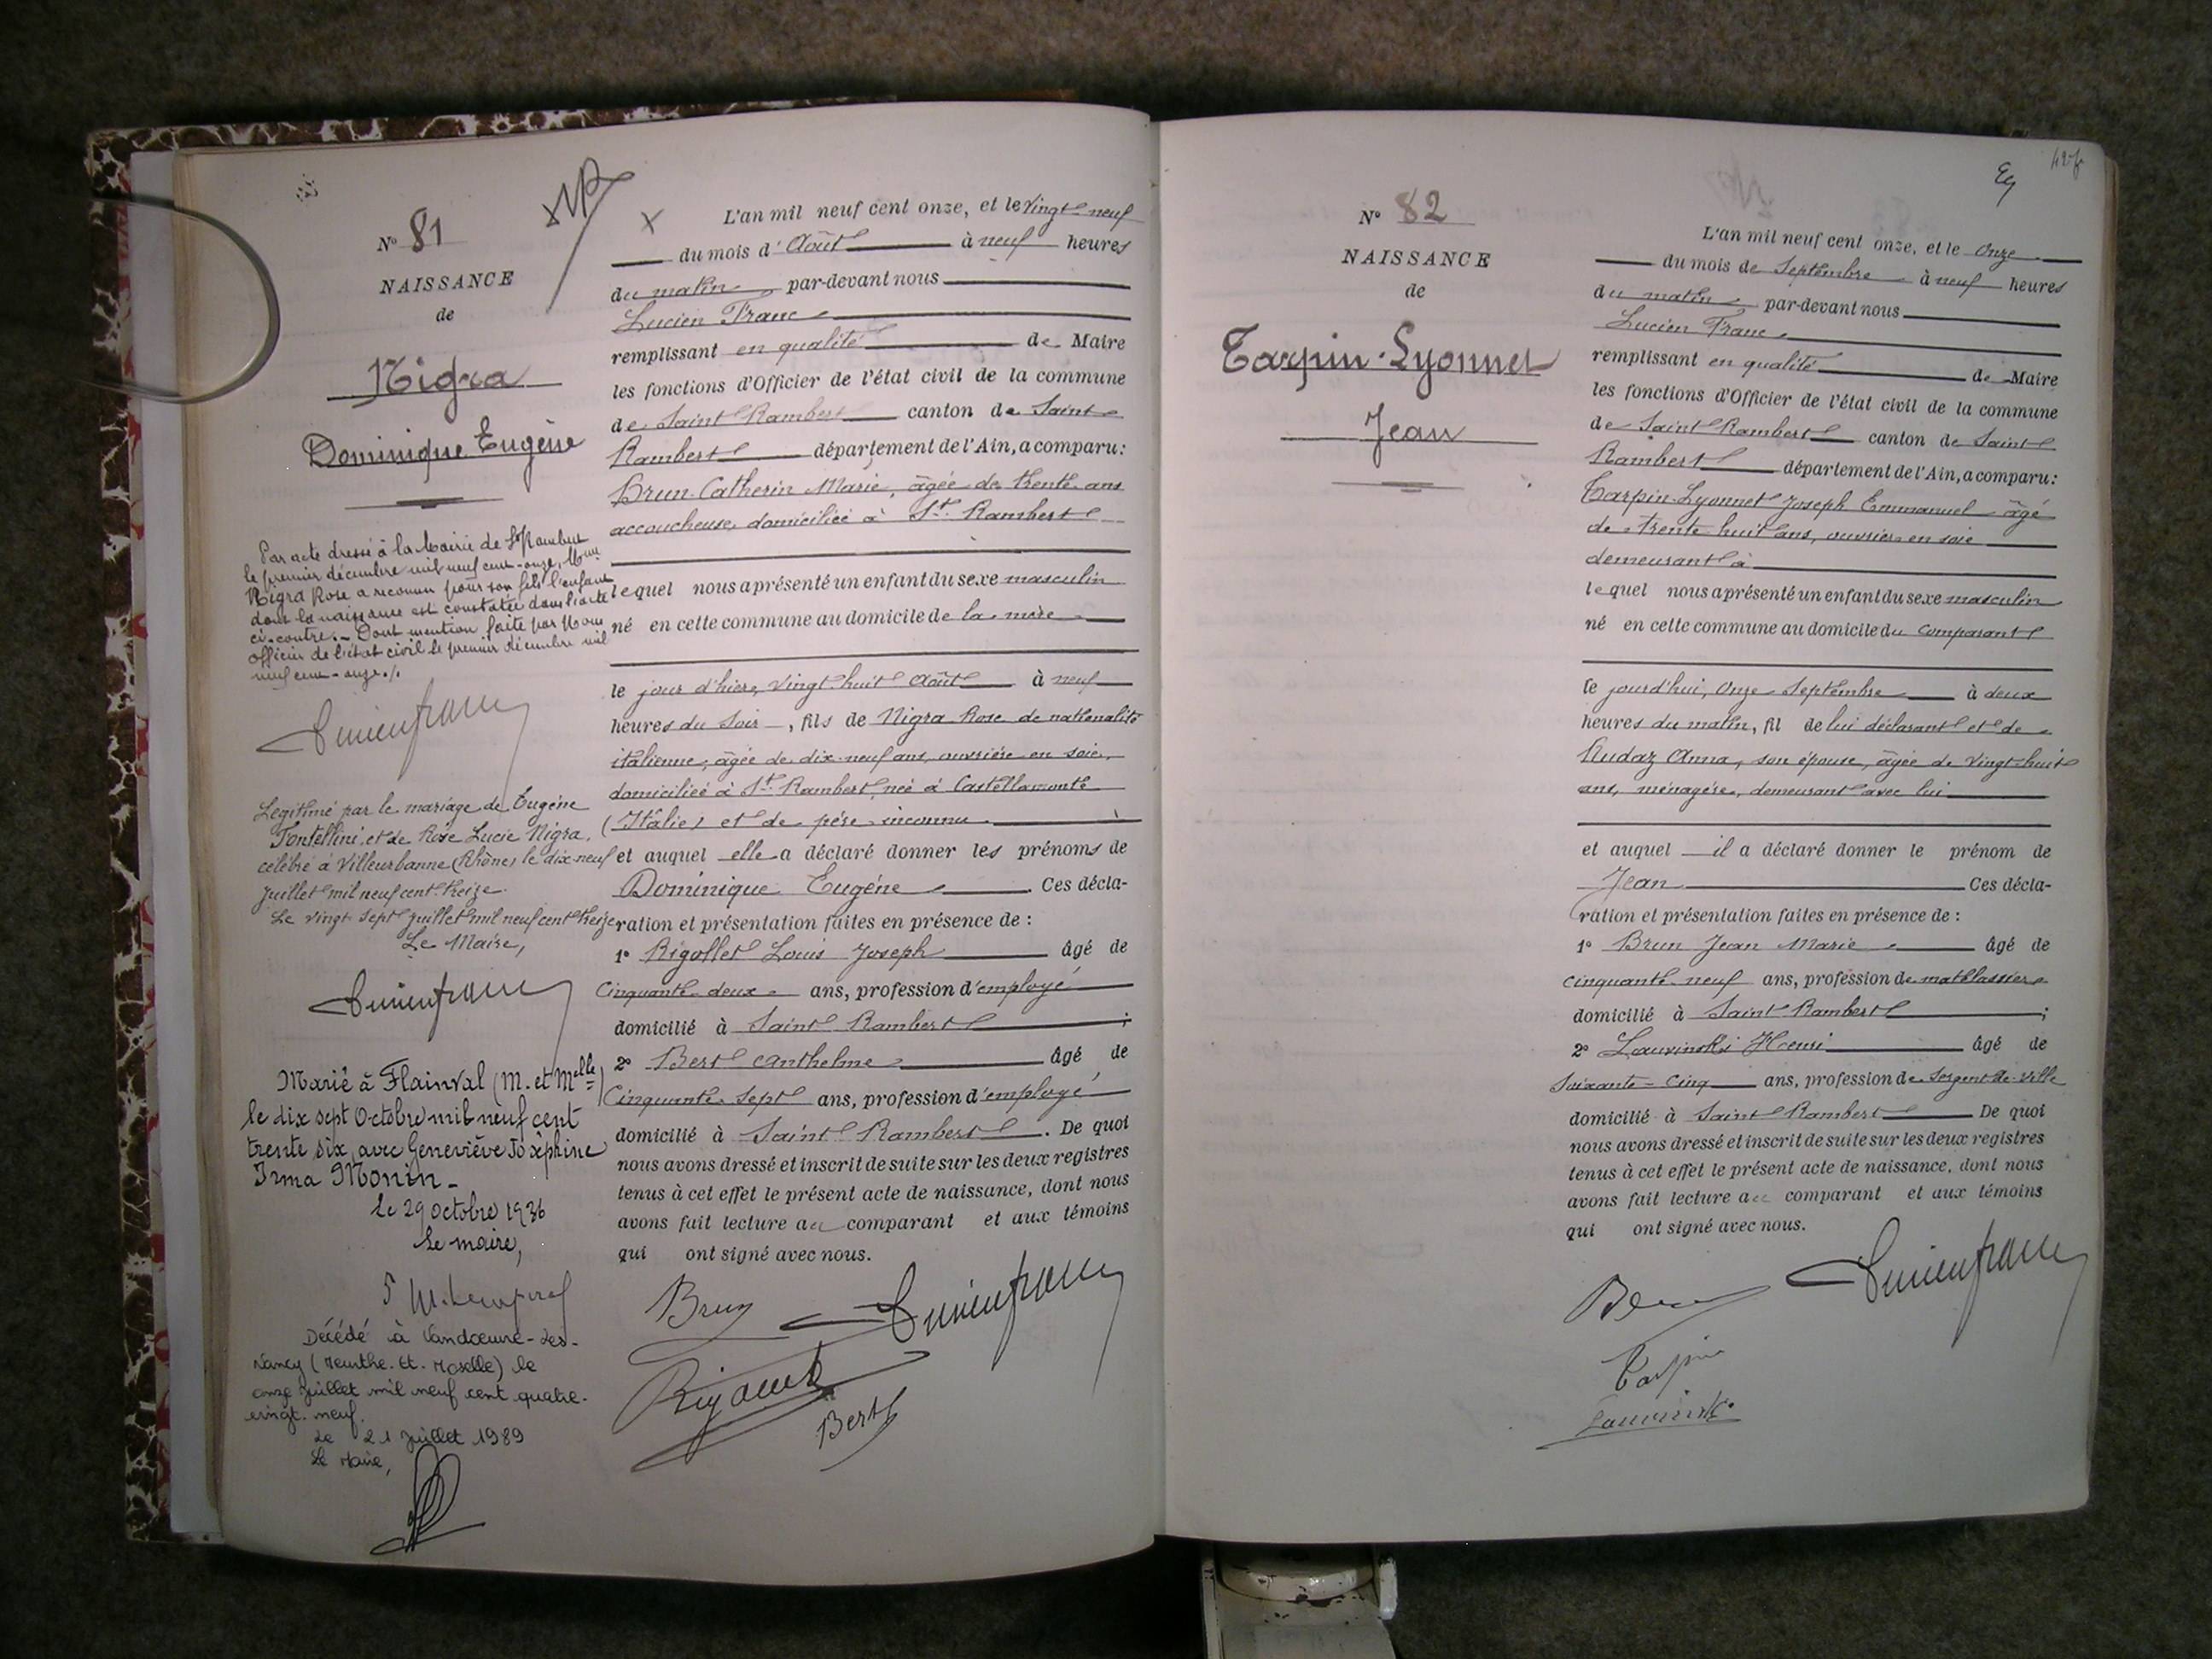 N° 81
NAISSANCE
de
Nigra
Dominique Eugène
Par acte dressé à la Mairie de St Rambert
le premier décembre mil neuf cent-onze, Mme
Nigra Rose a reconnu pour son fils l'enfant
dont la naissance est constatée dans l'acte
ci-contre. - Dont mention faite par Nous
officier de l'état civil le premier décembre mil
neuf cent-onze ./.
Lucien franc
Legitimé par le mariage de Eugène
Tontellini et de Rose Lucie Nigra,
célébré à Villeurbanne (Rhône) le dix-neuf
Juillet mil neuf cent treize.
Le vingt sept Juillet mil neuf cent treize
Le Maire,
Lucien franc
Marié à Flainval (M. et Melle)
le dix sept Octobre mil neuf cent
trente six, avec Geneviève Josèphine
Irma Monin_
Le 29 octobre 1936
Le maire,
Décédé à Vandœuvre-Les-
Nancy (Meurthe-Et-Moselle) le
onze Juillet mil neuf cent quatre-
vingt-neuf.
Le 21 Juillet 1989
Le Maire,
L'an mil neuf cent onze, et le vingt-neuf
du mois d'Août à neuf heures
du matin par-devant nous
Lucien Franc
remplissant en qualité de Maire
les fonctions d'Officier de l'état civil de la commune
de Saint Rambert canton de Saint
Rambert département de l'Ain, a comparu:
Brun Catherin Marie, âgée de trente ans
accoucheuse, domiciliée à St. Rambert
lequel nous a présenté un enfant du sexe masculin
né en cette commune au domicile de la mère
le jour d'hier, vingt-huit Août à neuf
heures du soir, fils de Nigra Rose de nationalité
italienne, âgée de dix-neuf ans, ouvrière en soie,
domiciliée à St. Rambert née à Castellamonte
(Italie) et de père inconnu
et auquel elle a déclaré donner les prénoms de
Dominique Eugène. Ces décla-
ration et présentation faites en présence de :
1° Rigollet Louis Joseph âgé de
Cinquante-deux ans, profession d'employé
domicilié à Saint Rambert ;
2° Bert Anthelme âgé de
Cinquante-Sept ans, profession d'employé
domicilié à Saint Rambert. De quoi
nous avons dressé et inscrit de suite sur les deux registres
tenus à cet effet le présent acte de naissance, dont nous
avons fait lecture au comparant et aux témoins
qui ont signé avec nous.
Brun
Lucien franc
Bert
N° 82
NAISSANCE
de
Tarpin-Lyonnet
Jean
L'an mil neuf cent onze, et le Onze
du mois de Septembre à neuf heures
du matin par-devant nous
Lucien Franc
remplissant en qualité de Maire
les fonctions d'Officier de l'état civil de la commune
de Saint Rambert canton de Saint
Rambert département de l'Ain, a comparu:
Tarpin-Lyonnet Joseph Emmanuel âgé
de trente huit ans, ouvrier en soie
demeurant à
lequel nous a présenté un enfant du sexe masculin
né en cette commune au domicile du comparant
le jourd'hui, Onze Septembre à deux
heures du matin, fil de lui déclarant et de
Audaz Anna, son épouse, âgée de vingt-huit
ans, ménagère, demeurant avec lui
et auquel il a déclaré donner le prénom de
Jean Ces décla-
ration et présentation faites en présence de :
1° Brun Jean Marie âgé de
cinquante-neuf ans, profession de mattelassier
domicilié à Saint Rambert ;
2° Lauvinski Henri âgé de
Soixante-Cinq ans, profession de Sergent de Ville
domicilié à Saint Rambert De quoi
nous avons dressé et inscrit de suite sur les deux registres
tenus à cet effet le présent acte de naissance, dont nous
avons fait lecture au comparant et aux témoins
qui ont signé avec nous.
Lucien franc
Tarpin
Lauvinski